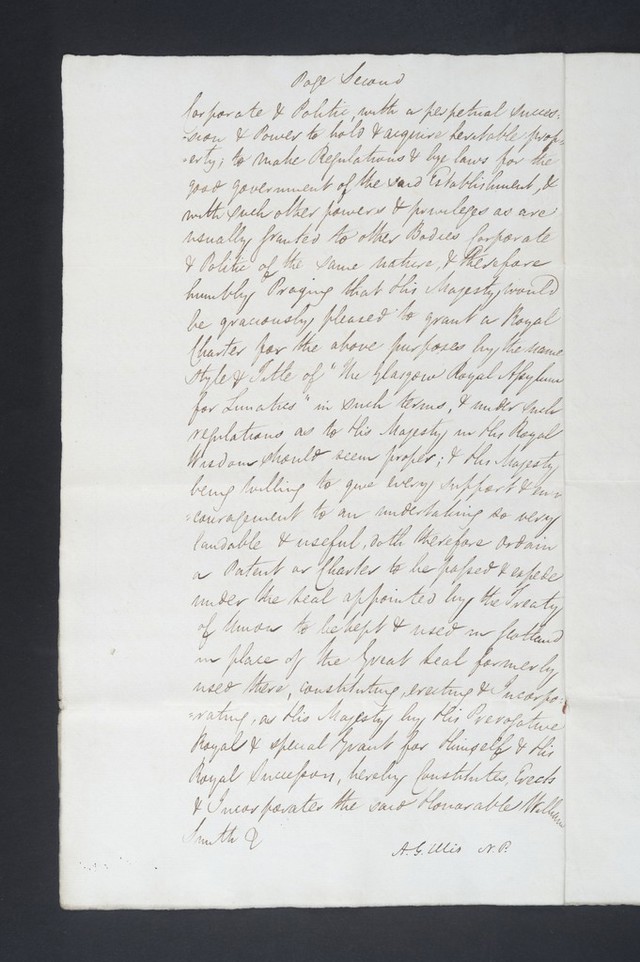 Page Second
Corporate & Politic, with a perpetual succes-
-sion & Power to hold & acquire heritable prop-
-erty; to make Regulations & bye laws for the
good government of the said Establishment, &
with such other powers & privileges as are
usually granted to other Bodies Corporate
& Politic of the same nature, & therefore
humbly Praying that His Majesty would
be graciously pleased to grant a Royal
Charter for the above purposes by the name
Style & Title of "The Glasgow Royal Asylum
for Lunatics" in such terms, & under such
regulations as to His Majesty in His Royal
Wisdom should seem proper; & His Majesty
being Willing to give every support & en-
-couragement to an undertaking so very
laudable & useful, doth therefore Ordain
a Patent or Charter to be passed & expede
under the Seal appointed by the Treaty
of Union to be kept & used in Scotland
in place of the Great Seal formerly
used there, constituting, erecting & Incorpo-
-rating, as His Majesty by His Prerogative
Royal & special Grant for Himself & His
Royal Successors, hereby Constitutes, Erects
& Incorporates the said Honorable William
Smith &
A. Gillis N.P.